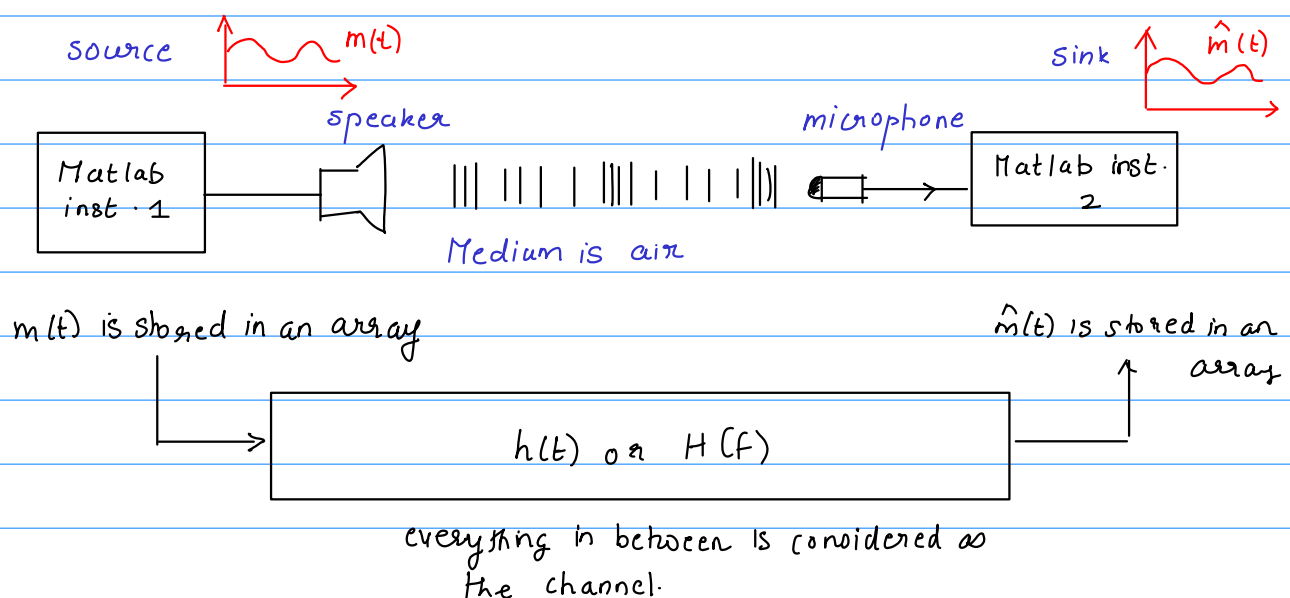 source
m(t)
sink
m̂(t)
speaker
microphone
Matlab
inst. 1
Matlab inst.
2
Medium is air
m(t) is stored in an array
m̂(t) is stored in an
array
h(t) or H(f)
everything in between is considered as
the channel.